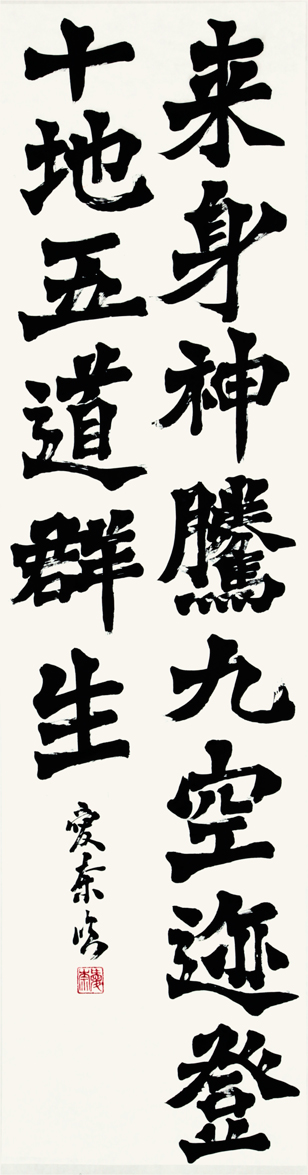 来身神騰九空迹登
十地五道群生